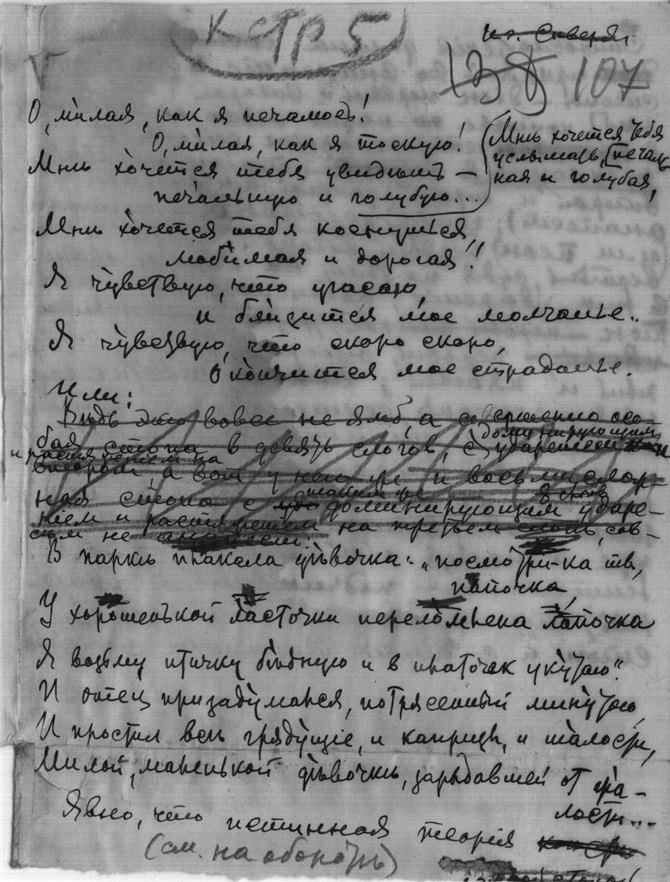 К стр 5
Из. Северян.
107
О, милая, какъ я печалюсь!
О, милая, какъ я тоскую!
Мнѣ хочется тебя увидѣть —
печальную и голубую...
Мнѣ хочется тебя
услышать, печаль-
ная и голубая,
Мнѣ хочется тебя коснуться,
любимая и дорогая!!
Я чувствую, что угасаю
и близится мое молчанье..
Я чувствую, что скоро скоро,
окончится мое страданье.
Или:
Вѣдь это вовсе не ямб, а совершенно осо
бая стопа в девять слогов, с доминирующим
ударением
и растяжением на
втором а вот у него же и восьмислож
ная стопа с доминирующим ударе-
нием и растяжением на третьем слоге, сов-
сѣм не анапест:
В паркѣ плакала дѣвочка: "посмотри-ка ты,
папочка,
У хорошенькой ласточки переломлена лапочка
Я возьму птичку бѣдную и в платочек укутаю".
И отец призадумался, потрясенный минутою,
И простил всѣ грядущіе, и капризы, и шалости,
Милой, маленькой дѣвочкѣ, зарыдавшей от жа-
лости...
Явно, что истинная теорія
(см. на оборотѣ)